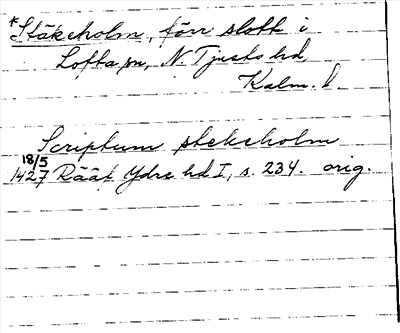 *Stäkeholm, förr slott i
Lofta sn, N Tjusts hd,
Kalm. l.
Scriptum stekeholm
18/5
1427 Rääf Ydre hd I, s. 234. orig.